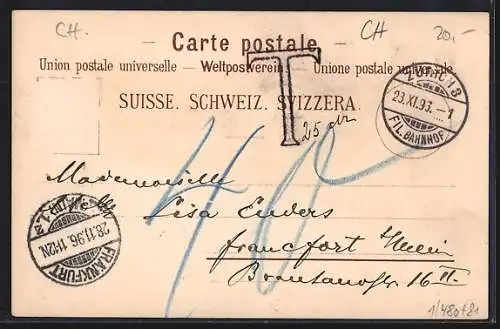 CH. CH 20,-
Carte postale.
Union postale universelle. — Weltpostverein. — Unione postale universale.
SUISSE. SCHWEIZ. SVIZZERA.
T
25
ZÜRICH 13
23.XI.93. – 1
FIL. BAHNHOF
40
Mademoiselle
Lisa Enders
Francfort s/Mein
Brentanostr 16 II.
FRANKFURT
28.11.96. 1-12N.
1/480+81